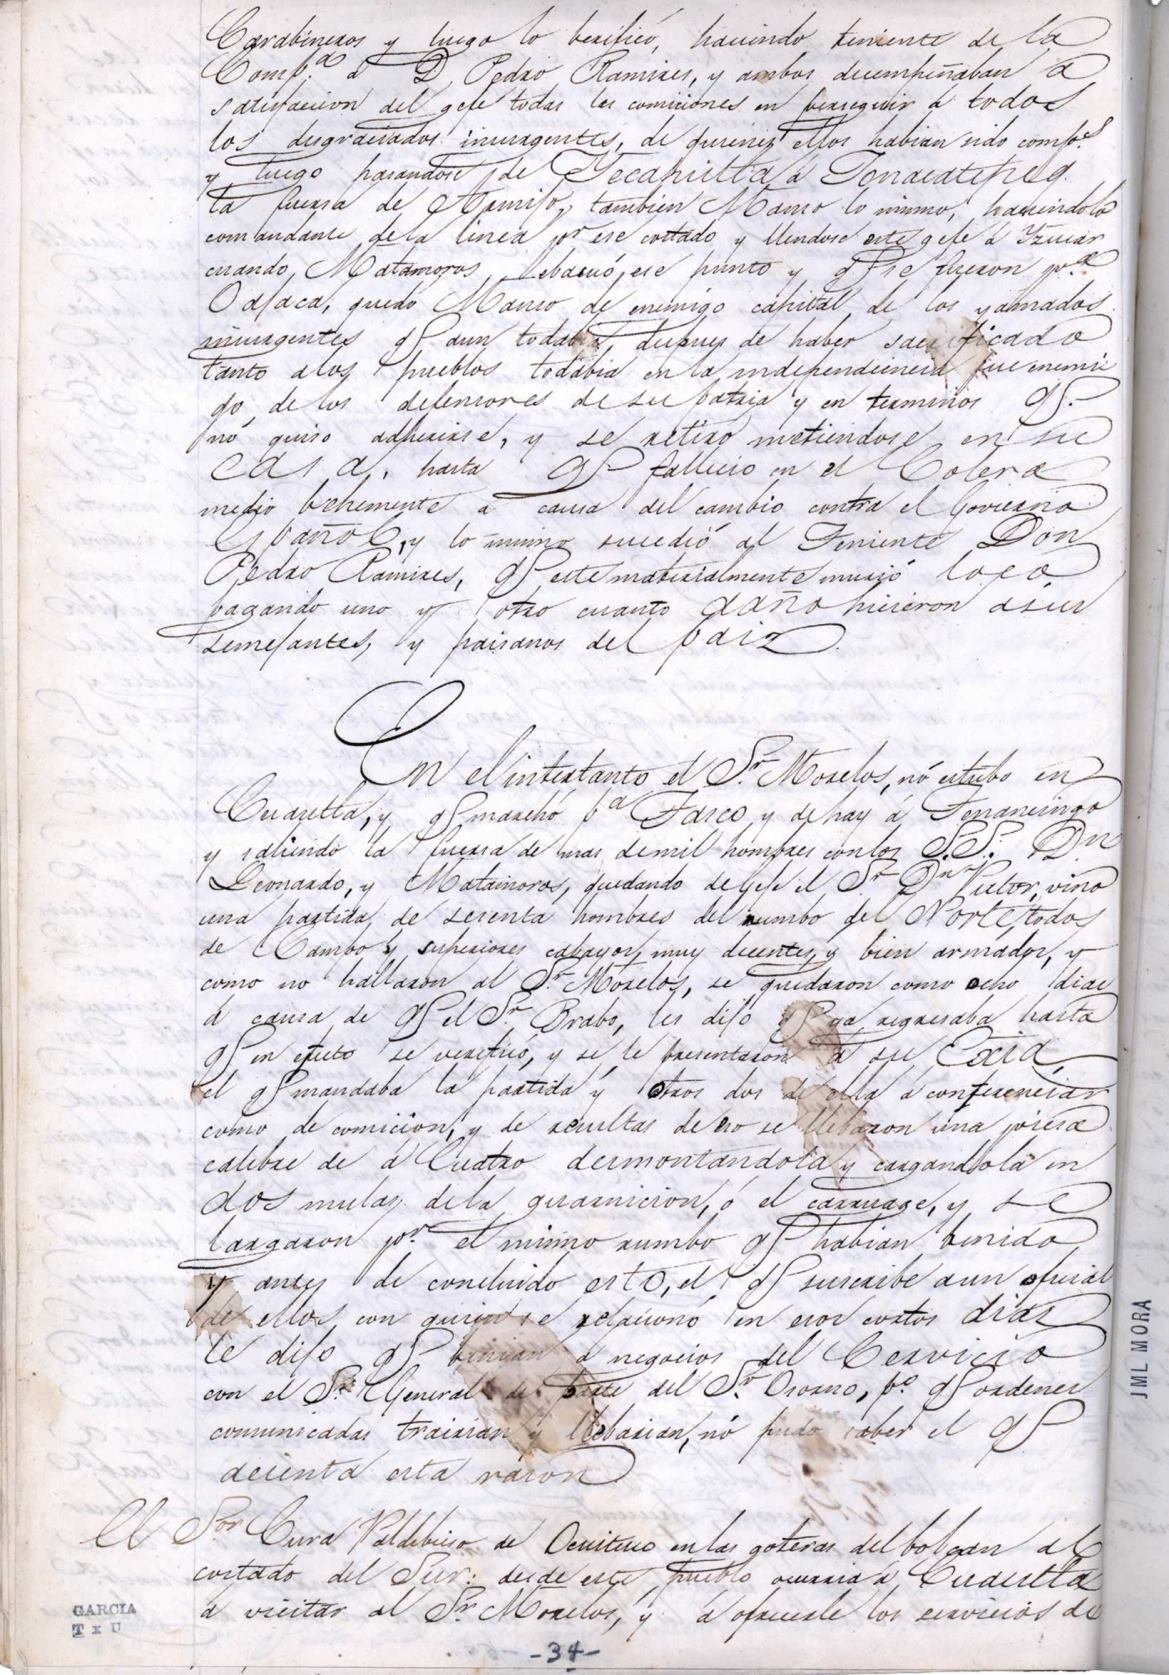 Carabineros y luego lo berificó, haciendo teniente de la
Comp.ª á D. Pedro Ramires, y ambos decempeñaban á
satisfaccion del gefe todas las comiciones en perseguir á todos
los desgraciados insurgentes, de quienes ellos habian sido comp.s
y luego pasandose de Tecapixtla á Jonacatepeq.
la fuersa de Armijo, tambien Manso lo mismo, haciendolo
comandante de la linea p.r ese costado y llendose este gefe á Yzucar
cuando, Matamoros, ebacuó, ese punto y q.e se fueron p.a
Oajaca, quedo Manso de enemigo capital de los yamados
insurgentes q.e aun todabia, despues de haber sacrificado
tanto alos pueblos todabia en la independencia fue enemi
go, de los defensores de su patria y en terminos q.e
nó quiso adherirse, y se retiro metiendose en su
casa, hasta q.e fallecio en el Colera
medio behemente á causa del cambio contra el Govierno
Español, y lo mismo sucedió al Teniente Don
Pedro Ramires, q.e este materialmente murió loco
pagando uno y otro cuanto daño hicieron asus
semejantes, y paisanos del paiz.
En el intertanto el S.r Morelos, nó estubo en
Cuautla, y q.e marchó p.a Tasco, y de hay á Tenancingo
y saliendo la fuersa de mas demil hombres conlos S.S. Dn
Leonardo, y Matamoros, quedando de Gefe el S.r Dn Victor, vino
una partida de sesenta hombres del rumbo del Norte, todos
de Cambo y superiores cabayos, muy decentes, y bien armados, y
como no hallaron al S.r Morelos, se quedaron como ocho dias
á causa de q.e el S.r Brabo, les dijo q.e ya regresaba hasta
q.e en efecto se verificó, y se le presentaron á su Exía
el q.e mandaba la partida y otros dos de ella á conferenciar
como de comicion, y de resultas de eso se llebaron una piesa
calibre de á Cuatro desmontandola y cargandola en
dos mulas de la guarnicion, ó el carruage, y se
largaron p.r el mismo rumbo q.e habian benido
y antes de concluido esto, el q.e suscribe aun oficial
de ellos, con quien se relacionó en esos cortos dias
le dijo q.e benian á negocios del Cervicio
con el S.r General de parte del S.r Osorno, p.o q.e ordenes
comunicadas traírian y llebarian, nó pudo saber el q.e
decienta esta rason
El S.or Cura Valdebieso de Ocuituco en las goteras del bolcan al
costado del Sur: desde este pueblo ocurria á Cuautla
á vicitar al S.r Morelos, y á ofrecerle los servicios de
GARCIA
T x U
-34-
JML MORA